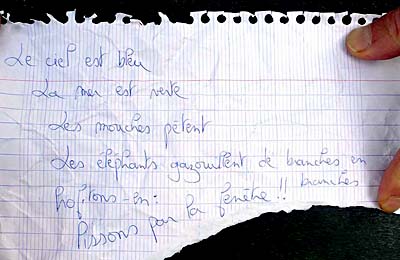 Le ciel est bleu
La mer est verte
Les mouches pètent
Les éléphants gazouillent de branches en
branches
Profitons-en:
Pissons par la fenêtre!!